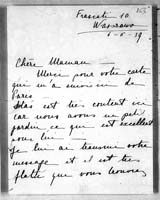 Frascati 10
Warszawa
1-6-39
Chère Maman -
Merci pour votre carte
qui m'a
Paris
est très content ici
car nous avons un petit
jardin, ce qui est excellent
pour lui -
Je lui ai transmis votre
message et il est très
flatté que vous trouvez